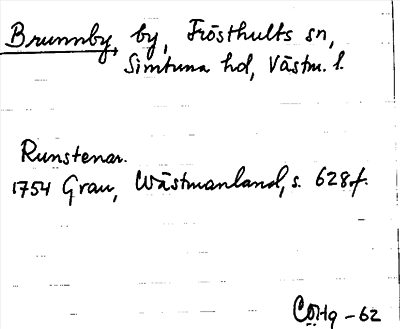 Brunnby by, Frösthults sn,
Simtuna hd, Västm. l.
Runstenar.
1754 Grau, Wästmanland, s. 628f.
COHg -62